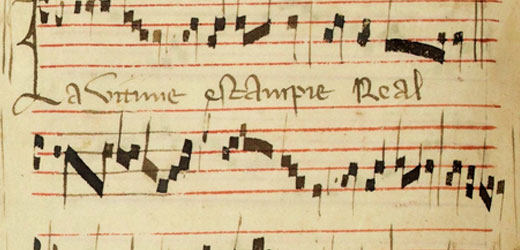 La vitime estampie Real